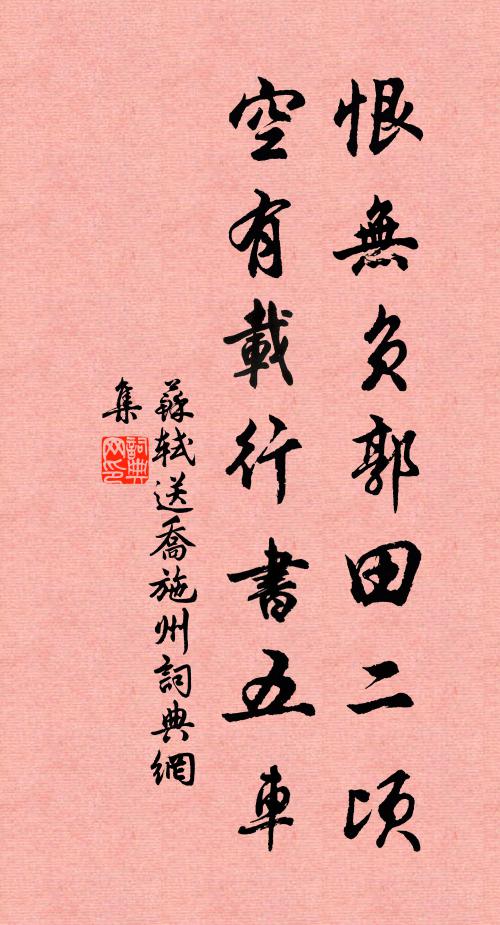 恨無負郭田二頃
空有載行書五車
蘇軾送喬施州詞典網
集
詞典
网印